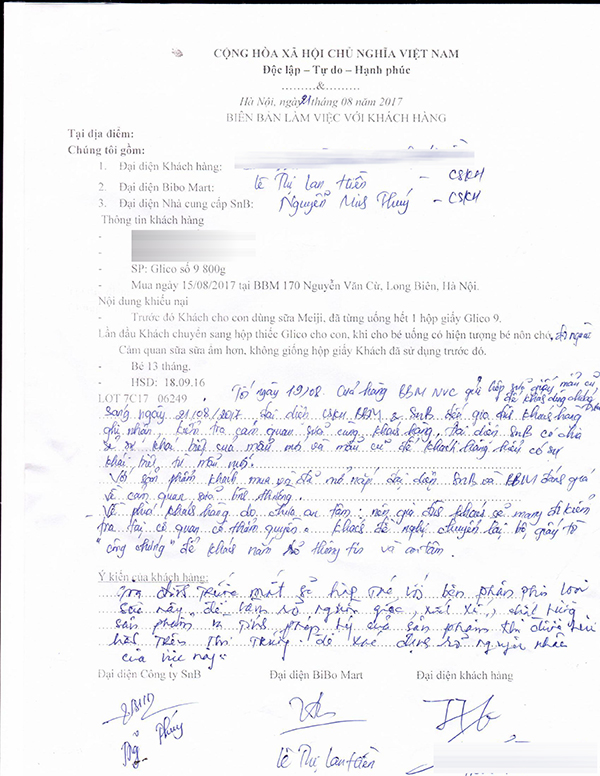 CỘNG HÒA XÃ HỘI CHỦ NGHĨA VIỆT NAM
Độc lập – Tự do – Hạnh phúc
.........&.........
Hà Nội, ngày 21 tháng 08 năm 2017
BIÊN BẢN LÀM VIỆC VỚI KHÁCH HÀNG
Tại địa điểm:
Chúng tôi gồm:
1. Đại diện Khách hàng:
2. Đại diện Bibo Mart: Lê Thị Lan Hiền - CSKH
3. Đại diện Nhà cung cấp SnB: Nguyễn Thuý - CSKH
Thông tin khách hàng
-
-
- SP: Glico số 9 800g
- Mua ngày 15/08/2017 tại BBM 170 Nguyễn Văn Cừ, Long Biên, Hà Nội.
Nội dung khiếu nại
- Trước đó Khách cho con dùng sữa Meiji, đã từng uống hết 1 hộp giấy Glico 9.
Lần đầu Khách chuyển sang hộp thiếc Glico cho con, khi cho bé uống có hiện tượng bé nôn chớ,
- Cảm quan sữa sữa ẩm hơn, không giống hộp giấy Khách đã sử dụng trước đó.
- Bé 13 tháng.
- HSD: 18.09.16
LOT 7C17 06249 Tố ngày 19/08. Cửa hàng BBM NVC gửi hộp giấy mẫu cũ
Sang ngày 21/08/2017 đại diện CSKH BBM & SnB đến gia đình khách hàng
ghi nhận kiểm tra cảm quan sữa cùng khách hàng. Đại diện SnB có chia
sẻ sự khác biệt của mẫu mới và mẫu cũ để khách hàng hiểu có sự
khác biệt từ mẫu mới.
Với sản phẩm khách mua và đã mở nắp, đại diện SnB và BBM đánh giá
về cảm quan sữa bình thường.
Về phía khách hàng do chưa an tâm: nên gia đình khách sẽ mang đi kiểm
tra tại cơ quan có thẩm quyền. Khách đề nghị chuyển lại bộ giấy tờ
"công chứng" để khách nắm rõ thông tin và an tâm.
Ý kiến của khách hàng:
sữa này. để làm rõ nguồn gốc, xuất xứ, chất lượng
sản phẩm và tính pháp lý của sản phẩm
để xác rõ nguyên nhân
của việc này.
Đại diện Công ty SnB Đại diện BiBo Mart Đại diện khách hàng
Thuý
Lê Thị Lan Hiền